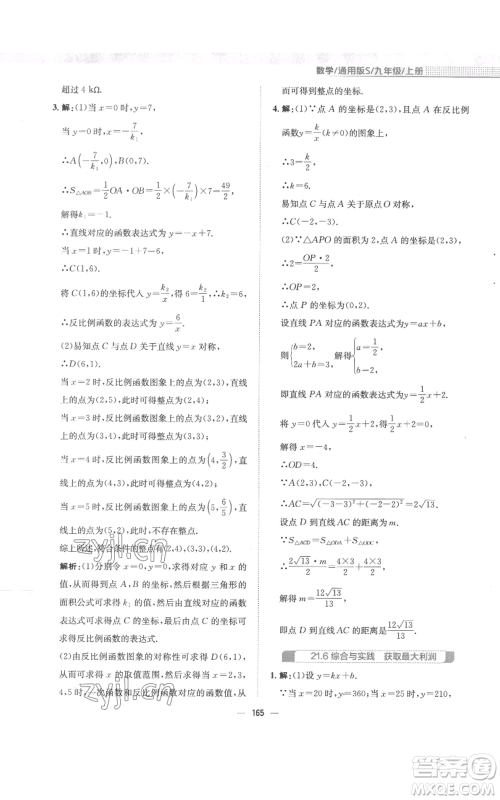 数学/通用版S/九年级/上册
超过 4 kΩ.
3. 解:(1)当 x=0 时,y=7,
当 y=0 时,x=-7/k₁,
∴A(-7/k₁,0),B(0,7).
∴S△AOB=1/2 OA·OB=1/2×(-7/k₁)×7=49/2,
解得k₁=-1.
∴直线对应的函数表达式为 y=-x+7.
∴C(1,6).
将 C(1,6)的坐标代入 y=k₂/x,得 6=k₂/1,∴k₂=6.
∴反比例函数的表达式为 y=6/x.
(2)易知点 C 与点 D 关于直线 y=x 对称,
∴D(6,1).
当 x=2 时,反比例函数图象上的点为(2,3),直线
上的点为(2,5),此时整点为(2,4);
当 x=3 时,反比例函数图象上的点为(3,2),直线
上的点为(3,4),此时整点为(3,3);
当 x=4 时,反比例函数图象上的点为(4,3/2),直
线上的点为(4,3),此时整点为(4,2);
当 x=5 时,反比例函数图象上的点为(5,6/5),直
线上的点为(5,2),此时,不存在整点.
综上所述,符合条件的整点有(2,4),(3,3),(4,2).
解析:(1)分别令 x=0 或 y=0 可求得 y 或 x 的
值,从而求得点 A,B 的坐标,然后根据三角形的
面积公式可求得 k₁ 的值,进而直线对应的函数表
达式可求得点 C 的坐标,代入反比例函数表达式
可求得反比例函数的表达式.
(2)由反比例函数图象的对称性可求得点 D 的坐
标,可求得 x 的取值范围,然后分别求得 x=2,3,
4,5 时,一次函数和反比例函数图象上对应点的坐标,
而可求得整点的坐标.
4. 解:(1)∵点 A(2,3),点 A 在反比例
函数y=k/x(k≠0)的图象上,
∴3=k/2,
∴k=6.
易知点 C 与点 A 关于原点O对称,
∴C(-2,-3).
(2)∵△APO 的面积为 2,点 A 的坐标为(2,3),
∴2=OP·2/2,
∴OP=2,
∴点 P 的坐标为(0,2).
设直线 PA 对应的函数表达式为 y=ax+b,
则{b=2, 2a+b=3, 解得{a=1/2, b=2,
即直线 PA 对应的函数表达式为 y=1/2x+2.
当 y=0 时,1/2x+2=0,
解得 x=-4.
∴OD=4.
∵A(2,3),C(-2,-3),
∴AC=√((-3-3)²+(-2-2)²)=2√13.
设点 D 到直线 AC 的距离为 m.
∵S△ACD=S△ODA+S△ODC,
∴2√13·m/2=4×3/2+4×3/2,
解得m=12√13/13,
即点 D 到直线 AC 的距离为12√13/13.
21.6 综合与实践 获取最大利润
解:(1)设 y=kx+b.
∵当 x=20 时,y=360;当 x=25 时,y=210,
165
zyjl.cn
zyjl.cn
答案圈
MXQE.COM